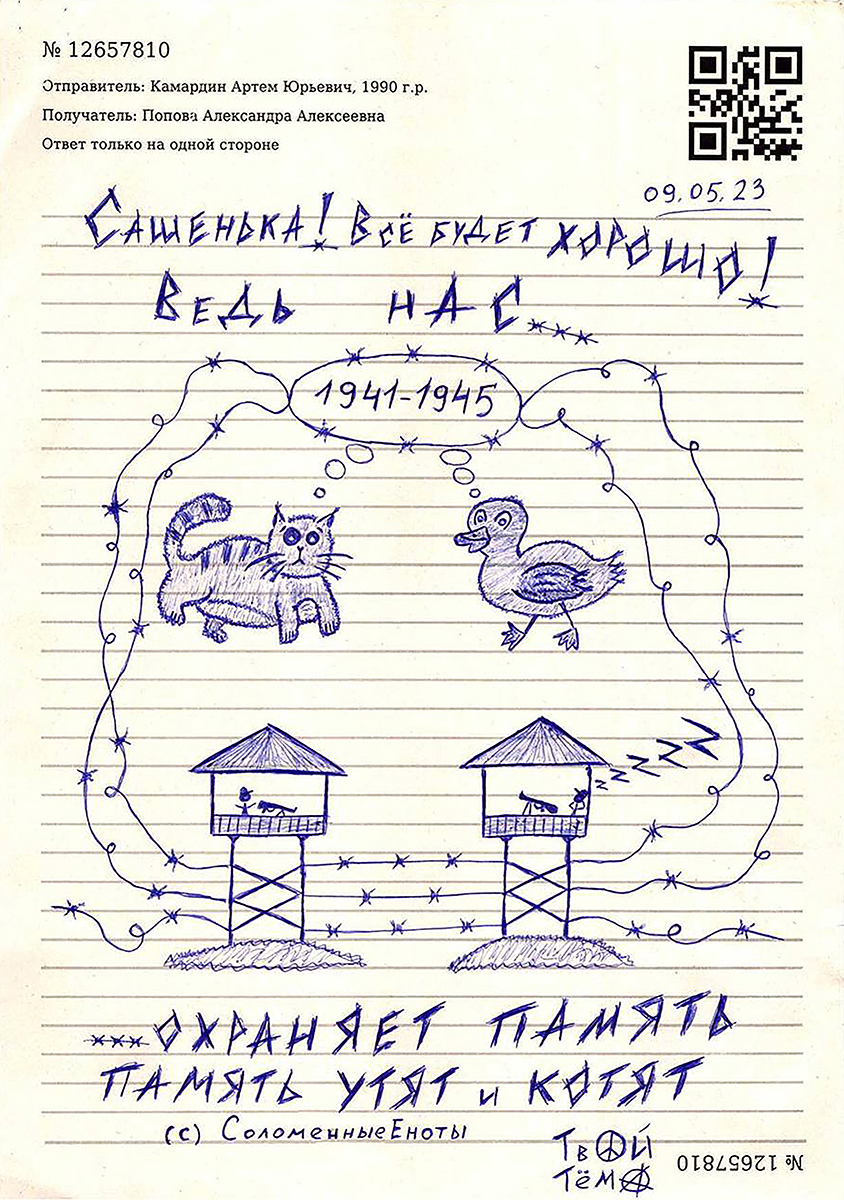 № 12657810
Отправитель: Камардин Артем Юрьевич, 1990 г.р.
Получатель: Попова Александра Алексеевна
Ответ только на одной стороне
09.05.23
Сашенька! Всё будет хорошо!
Ведь нас...
1941-1945
zzzzz
...охраняет память
память утят и котят
(с) СоломенныеЕноты
Твой
Тёма
№ 12657810